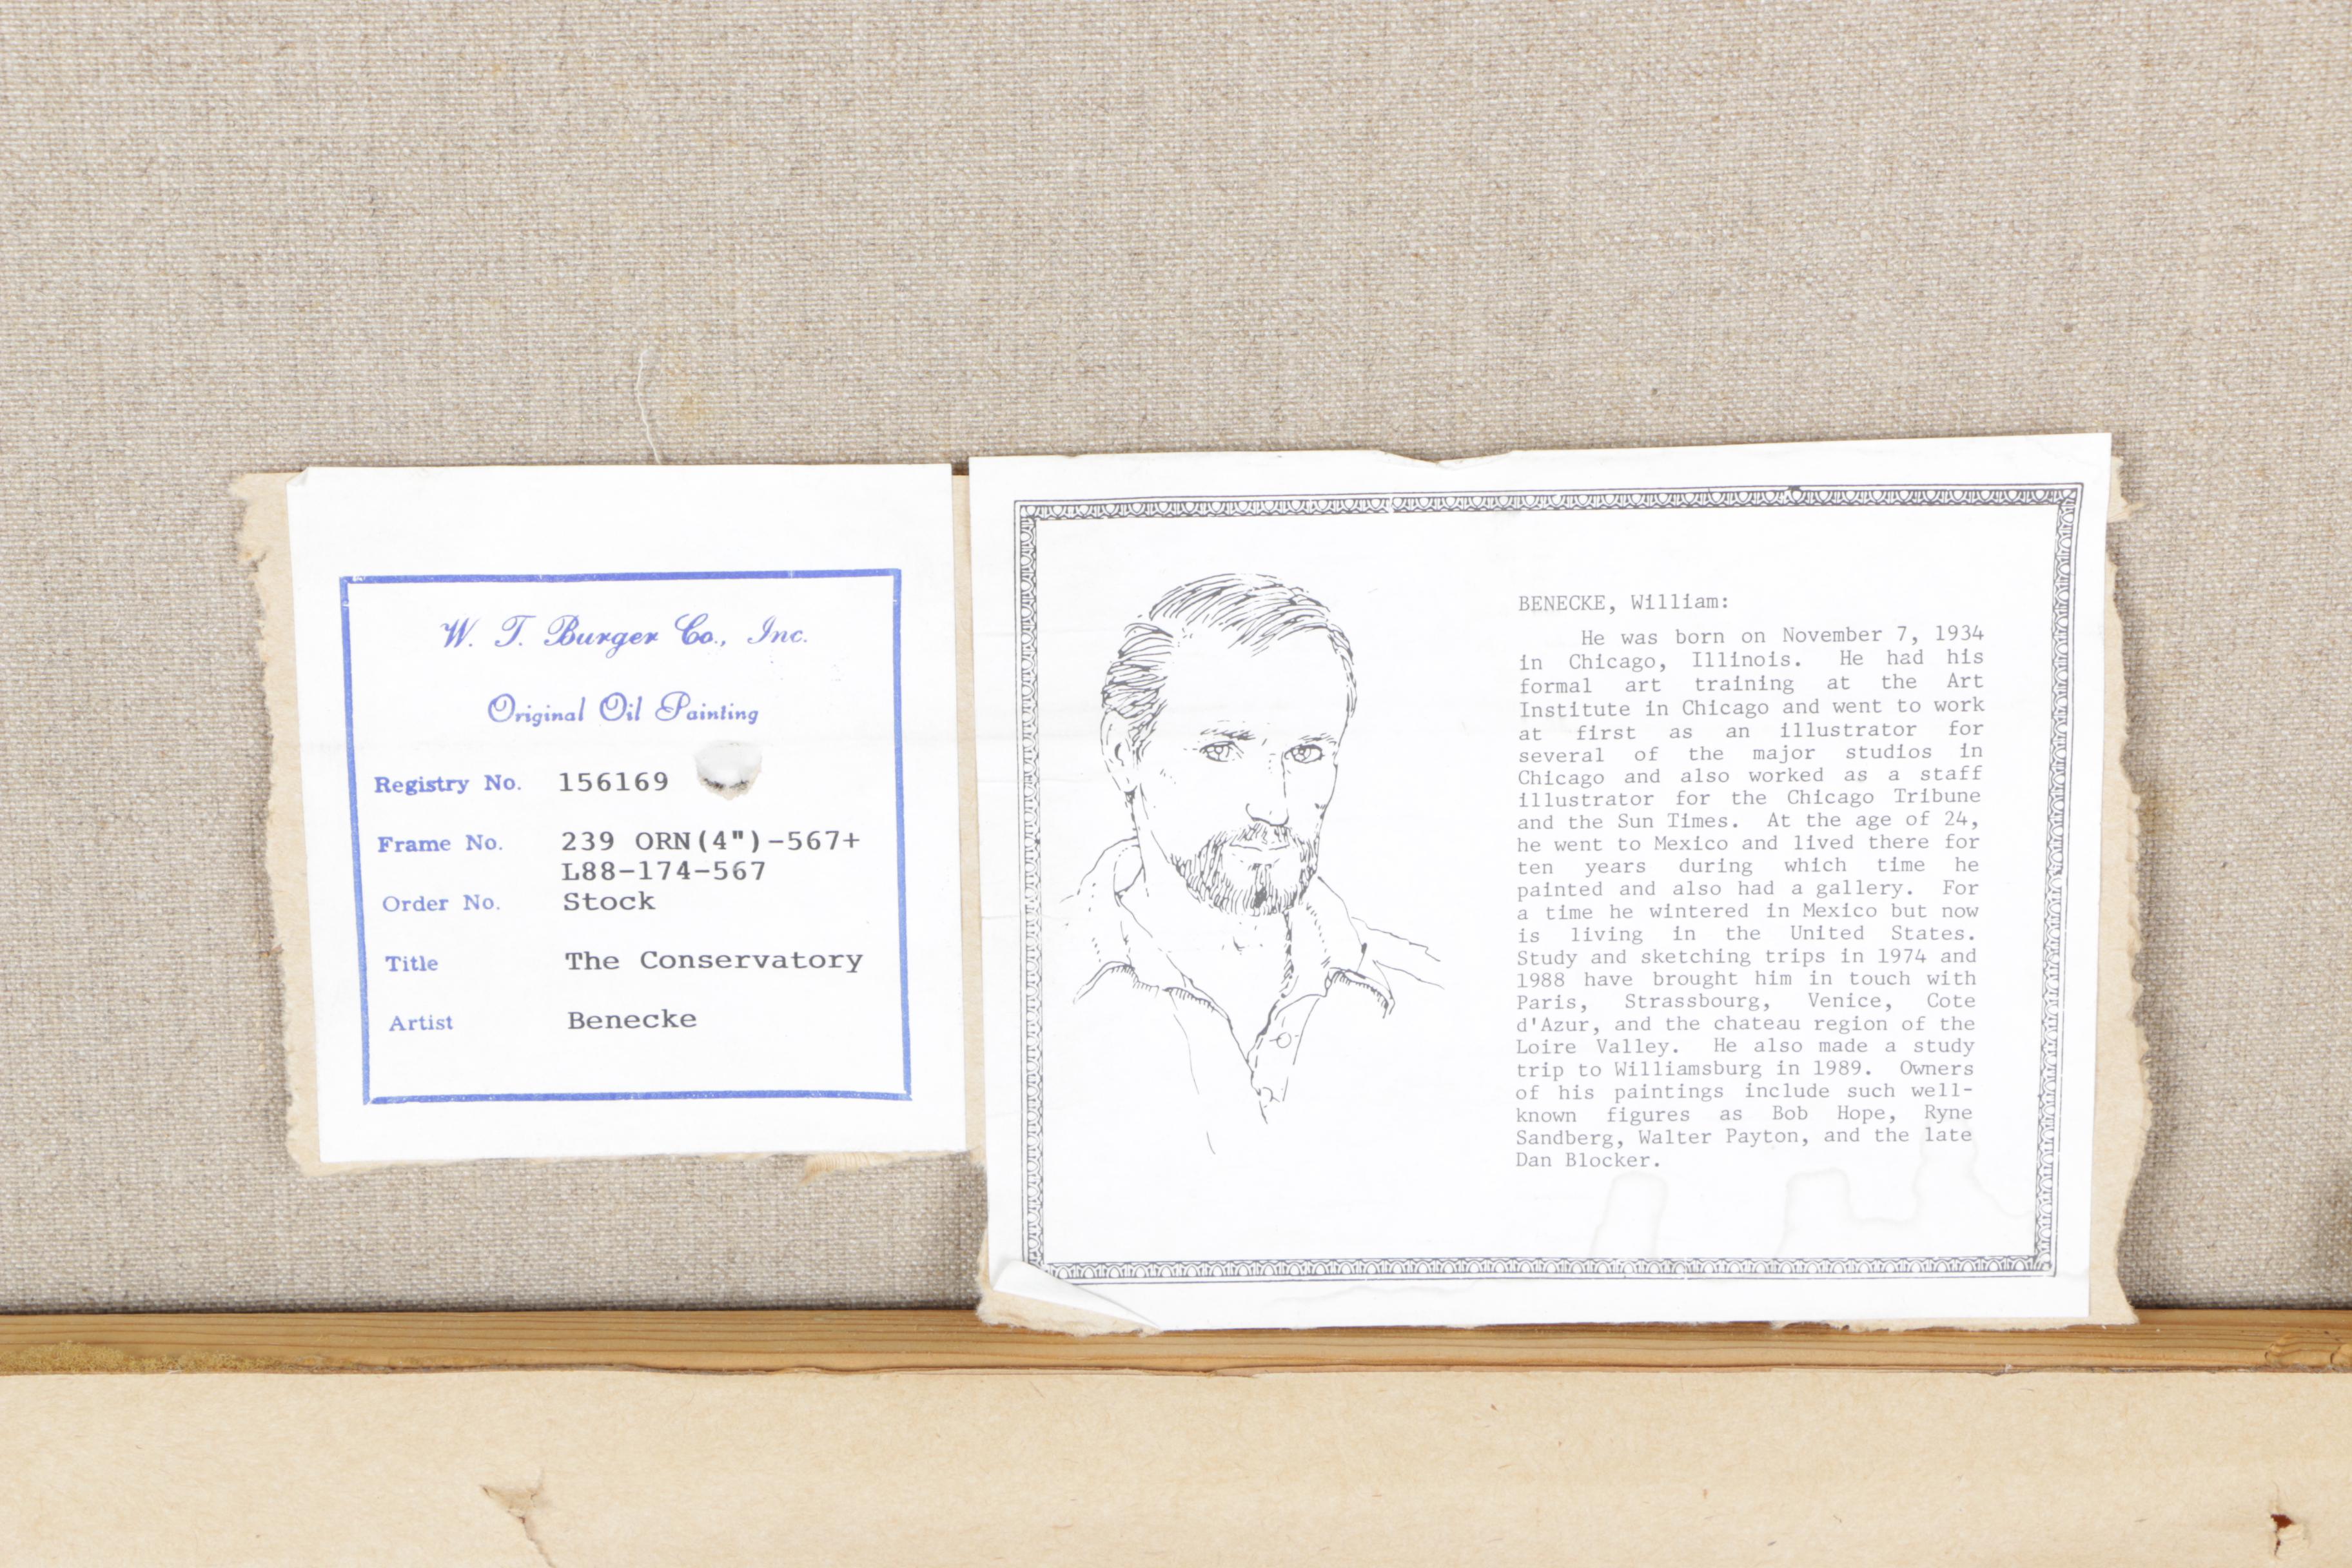 W. T. Burger Co., Inc.
Original Oil Painting
Registry No. 156169
Frame No. 239 ORN(4")-567+
L88-174-567
Order No. Stock
Title The Conservatory
Artist Benecke
BENECKE, William:
He was born on November 7, 1934
in Chicago, Illinois. He had his
formal art training at the Art
Institute in Chicago and went to work
at first as an illustrator for
several of the major studios in
Chicago and also worked as a staff
illustrator for the Chicago Tribune
and the Sun Times. At the age of 24,
he went to Mexico and lived there for
ten years during which time he
painted and also had a gallery. For
a time he wintered in Mexico but now
is living in the United States.
Study and sketching trips in 1974 and
1988 have brought him in touch with
Paris, Strassbourg, Venice, Cote
d'Azur, and the chateau region of the
Loire Valley. He also made a study
trip to Williamsburg in 1989. Owners
of his paintings include such well-
known figures as Bob Hope, Ryne
Sandberg, Walter Payton, and the late
Dan Blocker.